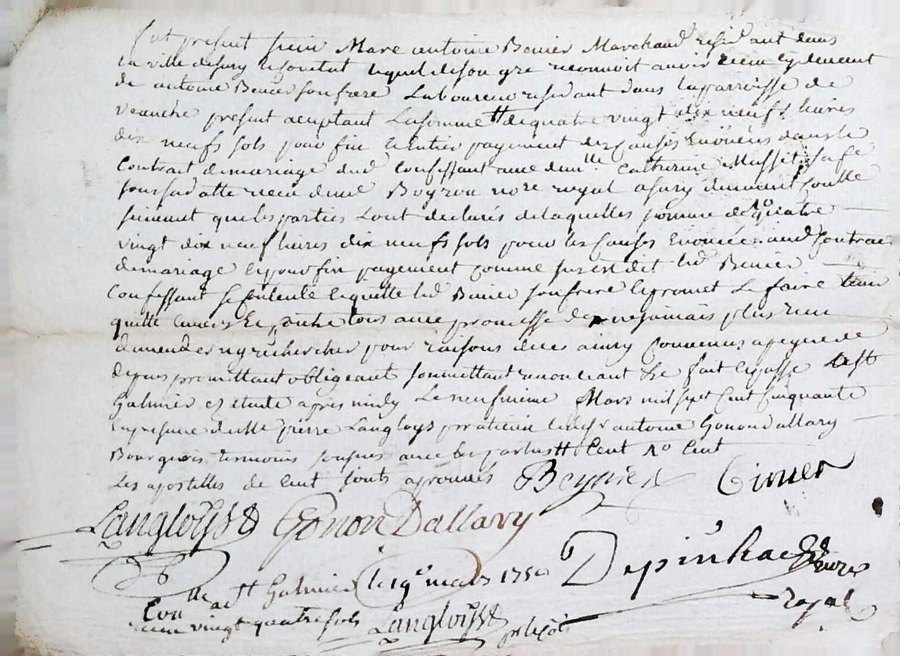 fut present Sieur Marc antoine Benier Marchand residant dans
la ville de sury le comtal lequel de son gre reconnoit avoir receu cy devent
de antoine Benier son frere Laboureur residant dans la parroisse de
veauche present acceptant La somme de quatre vingt dix neufs livres
dix neufs sols pour fin et entier payement des causes Enoncées dans le
Contrat de mariage dud confessant avec demlle Catherine Musset sa fe
jour sa datte receu dud me Boyron nore royal a sury duement controllé
suivant que les parties L'ont declarés de laquelles somme de quatre
vingt dix neuf livres dix neufs sols pour les causes Enoncées aud Contrat
de mariage et pour fin payement comme sus est dit led Benier
Confessant se contente et quitte led Benier son frere et promet Le faire tenir
quitte envers Et contre tous avec promesse de ne jamais plus rien
demender ny rechercher pour raisons de ce ainsy Convenus a peyne de
depens promettant obligeant soumettant renonceant &c fait et passé a st
Galmier ez etude après midy Le neufvieme Mars mil sept Cent Cinquante
en presence de Me pierre Langloys praticien et sieur antoine Gonon Dallary
Bourgeois temoins soussignés avec les parties
Les apostilles de cent sont aprouvés Beynier Cimer
Langloys Gonon Dallary
Depinhac nore
royal
Conlle a st Galmier le 19e mars 1750
receu vingt quatre sols Langloys